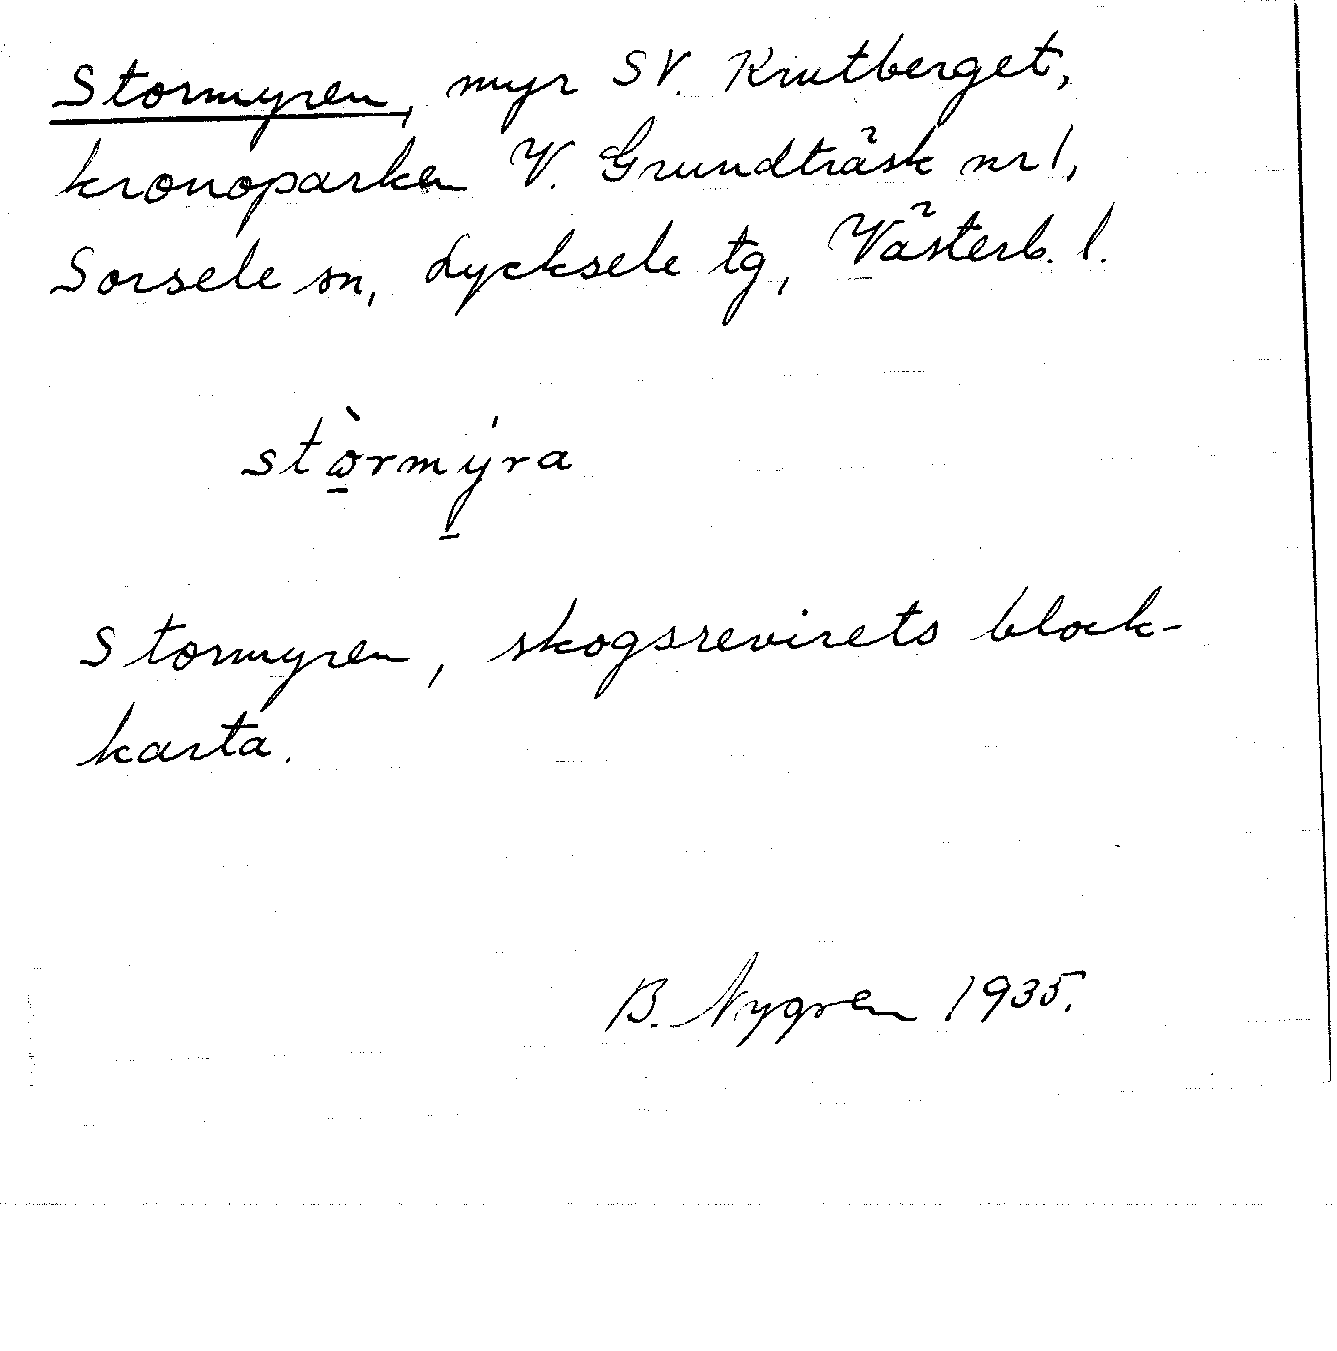 Stormyren, myr SV. Krutberget,
kronoparken V. Grundträsk nr 1,
Sorsele sn, Lycksele tg, Västerb. l.
stò̱rmý̱ra
Stormyren, skogsrevirets block-
karta.
B. Nygren 1935.